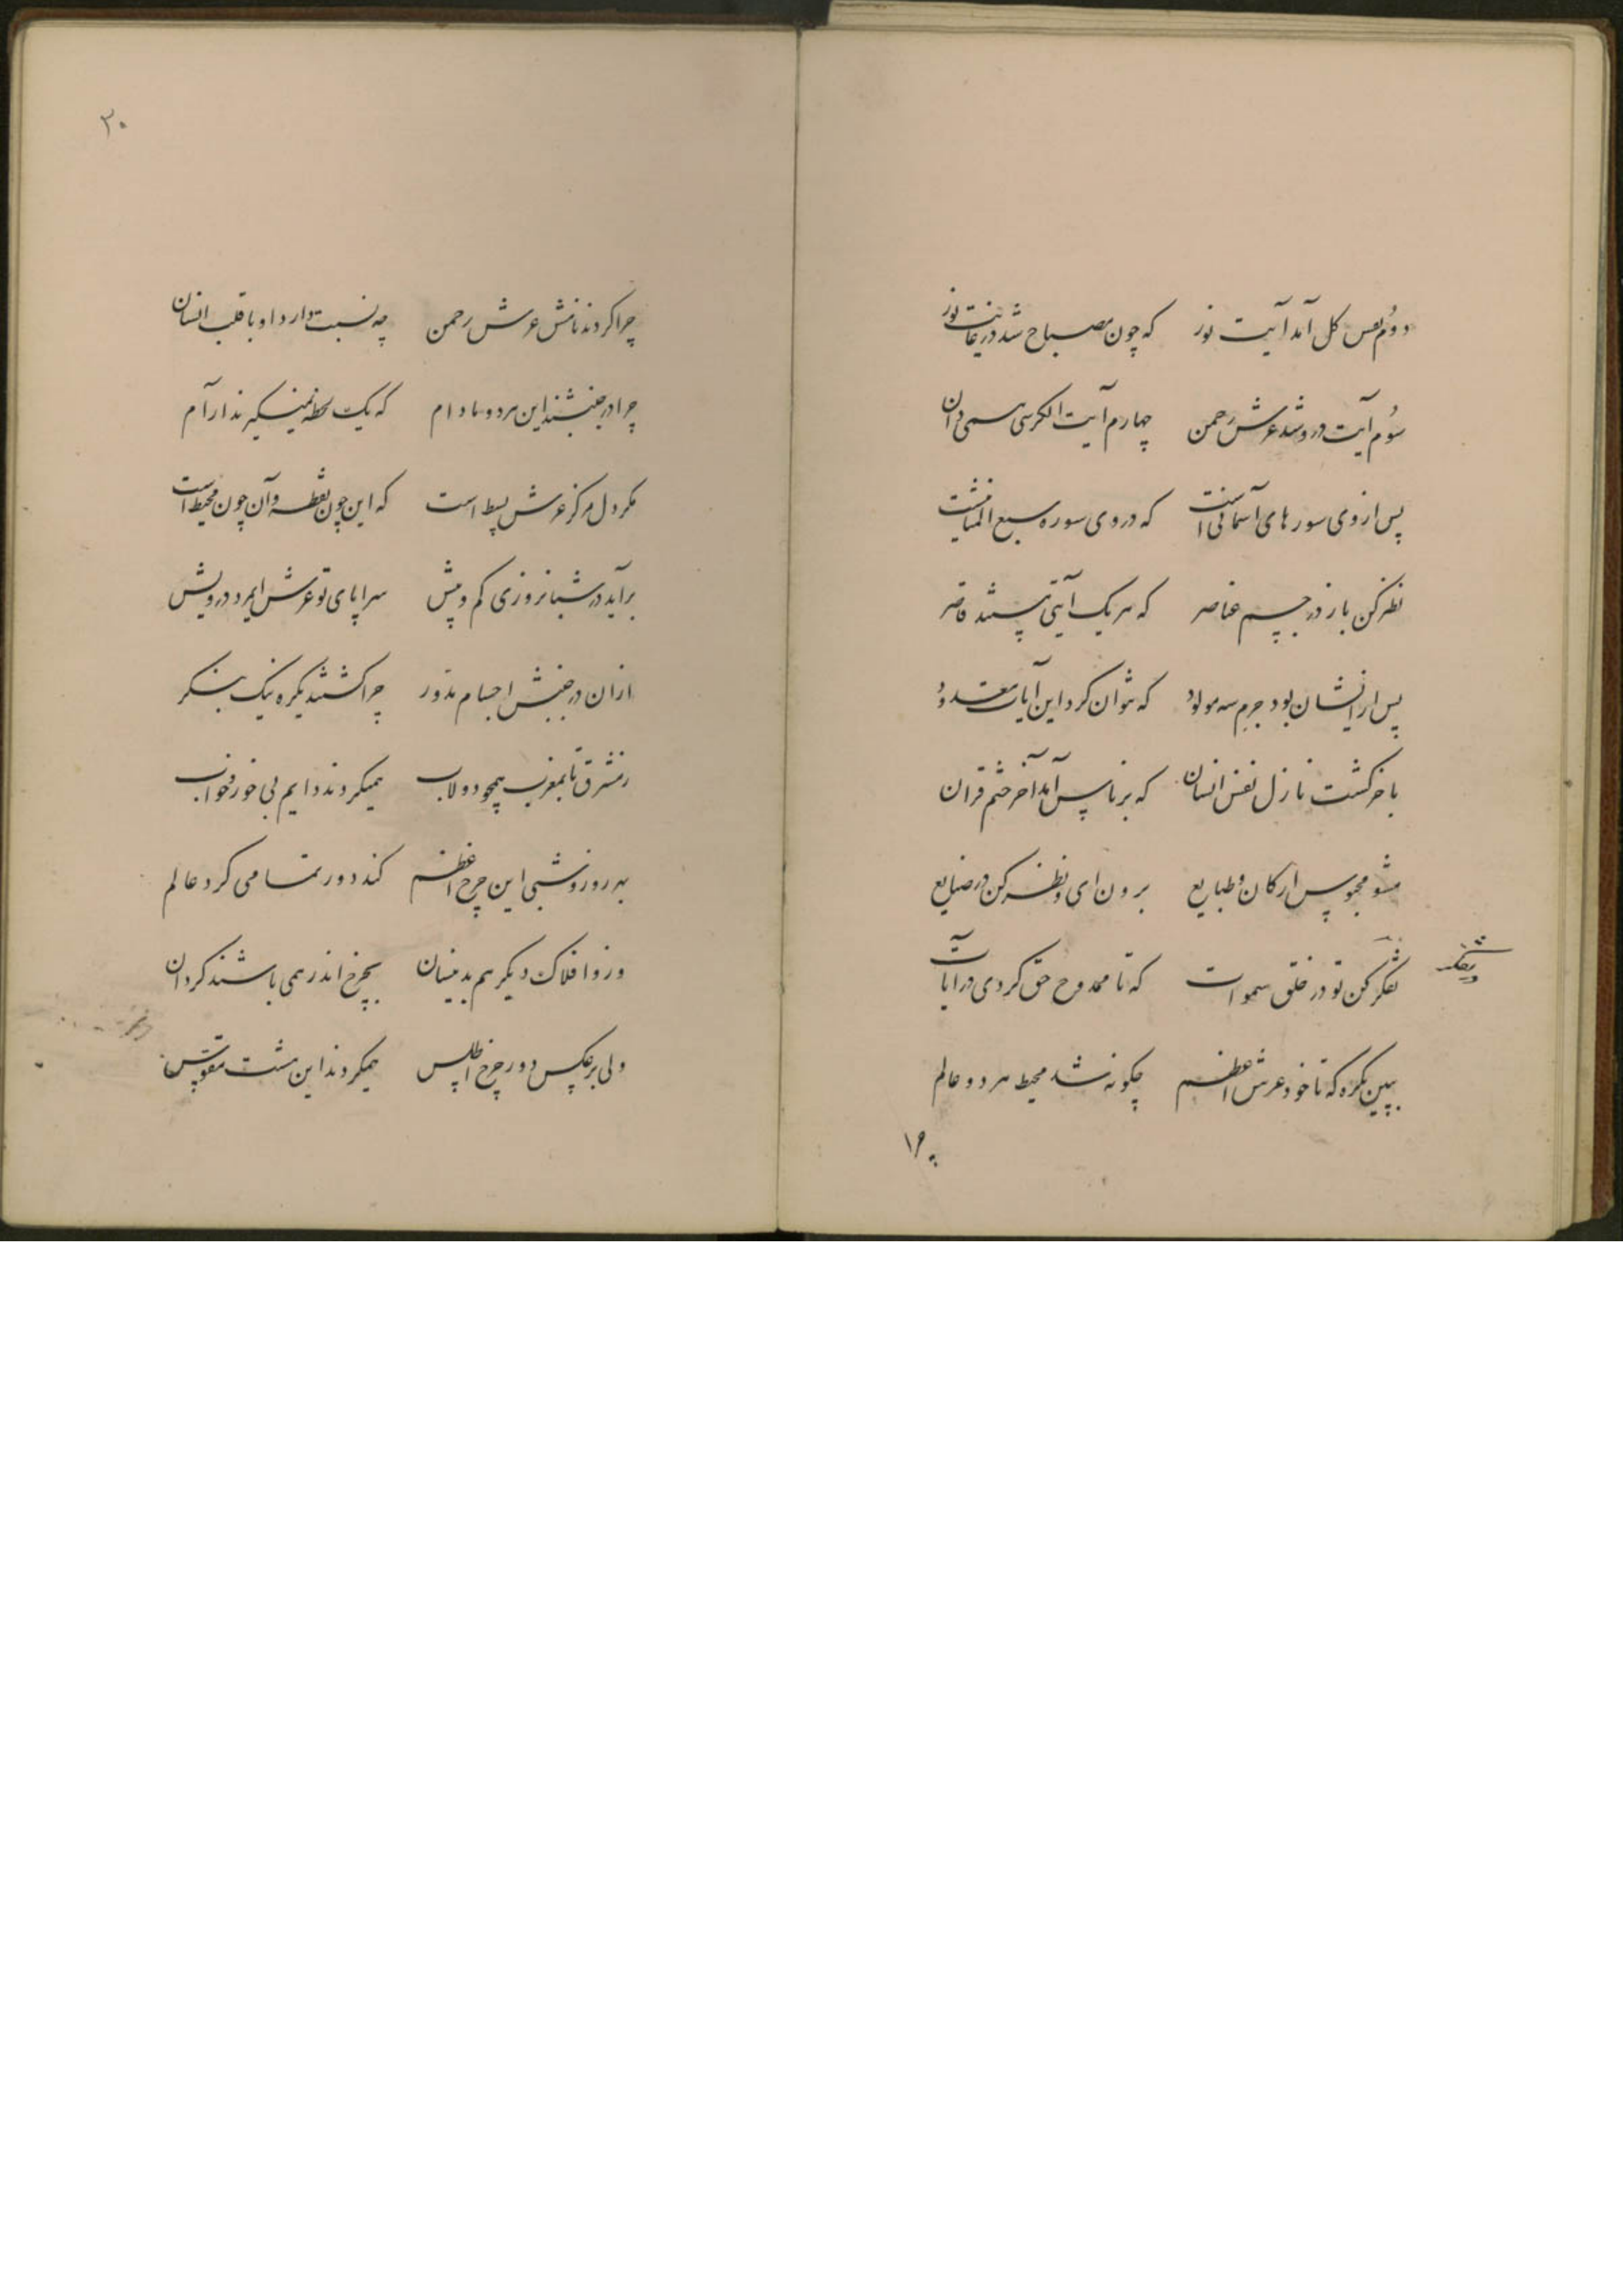 دوُم نفس کل آمد آیت نور که چون مصباح شد در غایت نور
سوُم آیت در و شد عرش رحمن چهارم آیت الکرسی همی دان
پس از وی سورهای آسمانی است که در وی سوره سبع المثانیست
نظر کن باز در جسم عناصر که هر یک آیتی هستند قاصر
پس از ایشان بود جرم سه مولود که نتوان کرد این آیات معدود
باخر کشت نازل نفس انسان که بر ناس آمد آخر ختم قران
مشو محبوس ارکان و طبایع برون ای و نظر کن در صنایع
تفکر کن تو در خلق سموات که تا ممدوح حق کردی در آیات
ببین یکره که تا خود عرش اعظم چکونه شد محیط هر دو عالم
۲۰
چرا کردند نامش عرش رحمن چه نسبت دارد او با قلب انسان
چرا در جنبشند این هر دو مادام که یک لحظه نمیکیرند آرام
مکر دل مرکز عرش بسیط است که این چون نقطه و آن چون محیط است
برآید در شبانروزی کم و بیش سراپای تو عرش ایمرد درویش
ازان در جنبش اجسام مدور چرا کشتند یکره نیک بنکر
ز مشرق تا بمغرب همچو دولاب همیکردند دایم بی خور و خواب
به روز و شبی این چرخ اعظم کند دور تمامی کرد عالم
وزو افلاک دیکر هم بدینسان بچرخ اندر همی باشند کردان
ولی برعکس دور چرخ اطلس همیکردند این هشت مقوس